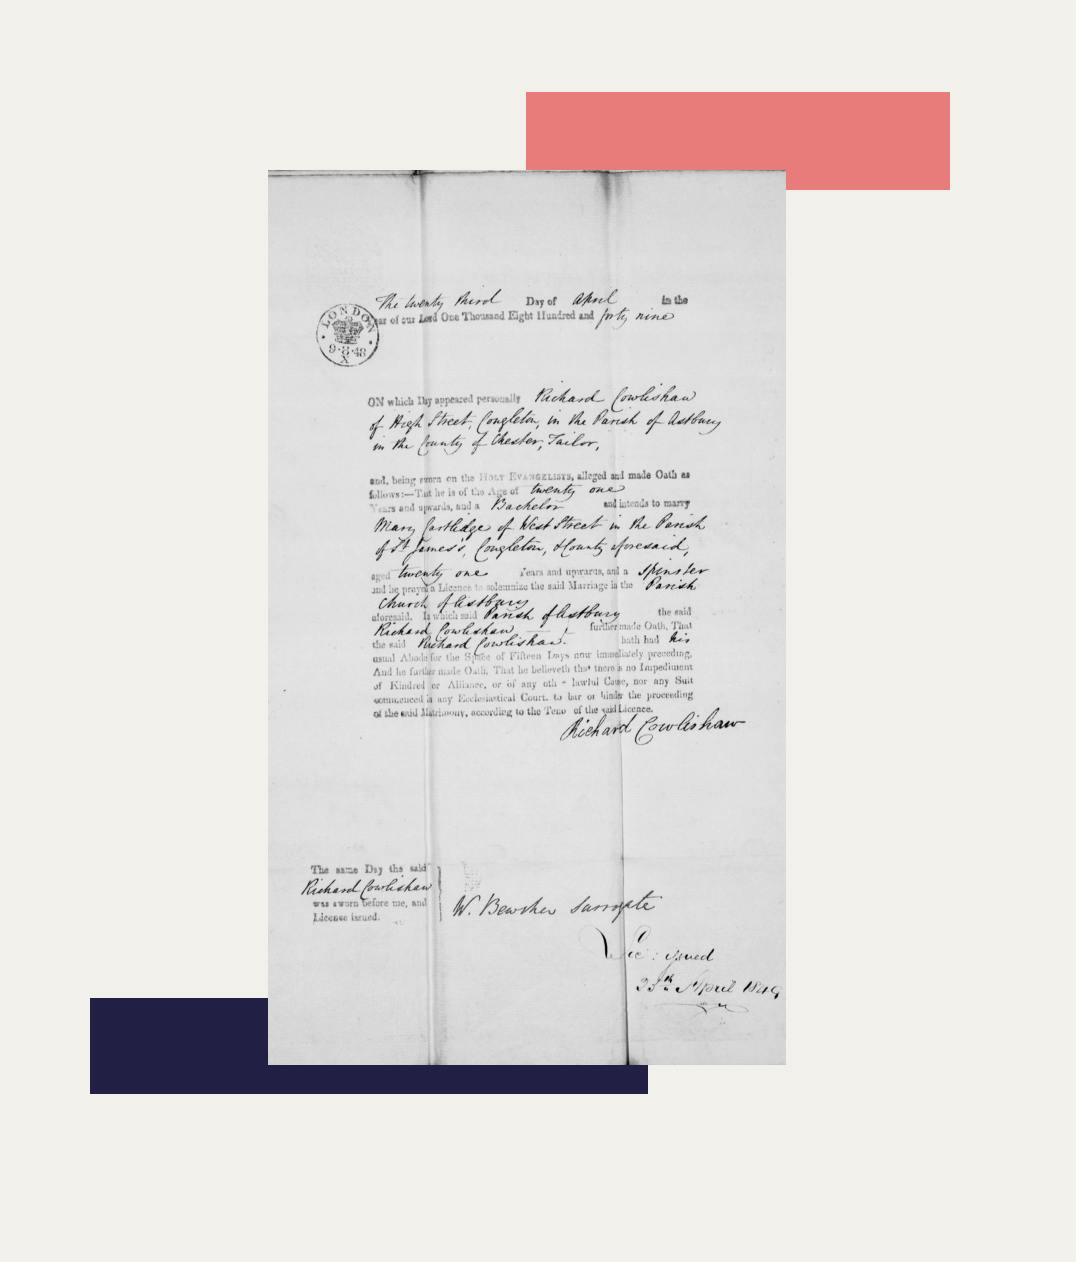 The twenty third Day of April in the
ear of our Lord One Thousand Eight Hundred and forty nine
LONDON
9·8·48
X
ON which Day appeared personally Richard Cowlishaw
of High Street, Congleton, in the Parish of Astbury
in the County of Chester, Tailor,
and, being sworn on the HOLY EVANGELISTS, alleged and made Oath as
follows:—That he is of the Age of twenty one
Years and upwards, and a Bachelor and intends to marry
Mary Cartlidge of West Street in the Parish
of St James's, Congleton, & County aforesaid,
aged twenty one Years and upwards, and a Spinster
and he prays a Licence to solemnize the said Marriage in the Parish
Church of Astbury
aforesaid. In which said Parish of Astbury the said
Richard Cowlishaw further made Oath, That
the said Richard Cowlishaw. hath had his
usual Abode for the Space of Fifteen Days now immediately preceding.
And he further made Oath, That he believeth that there is no Impediment
of Kindred or Alliance, or of any oth lawful Cause, nor any Suit
commenced in any Ecclesiastical Court, to bar or hinder the proceeding
of the said Matrimony, according to the Teno of the said Licence.
Richard Cowlishaw
The same Day the said
Richard Cowlishaw
was sworn before me, and
License issued.
W. Bewsher Surrogate
Lic: issued
April 1849